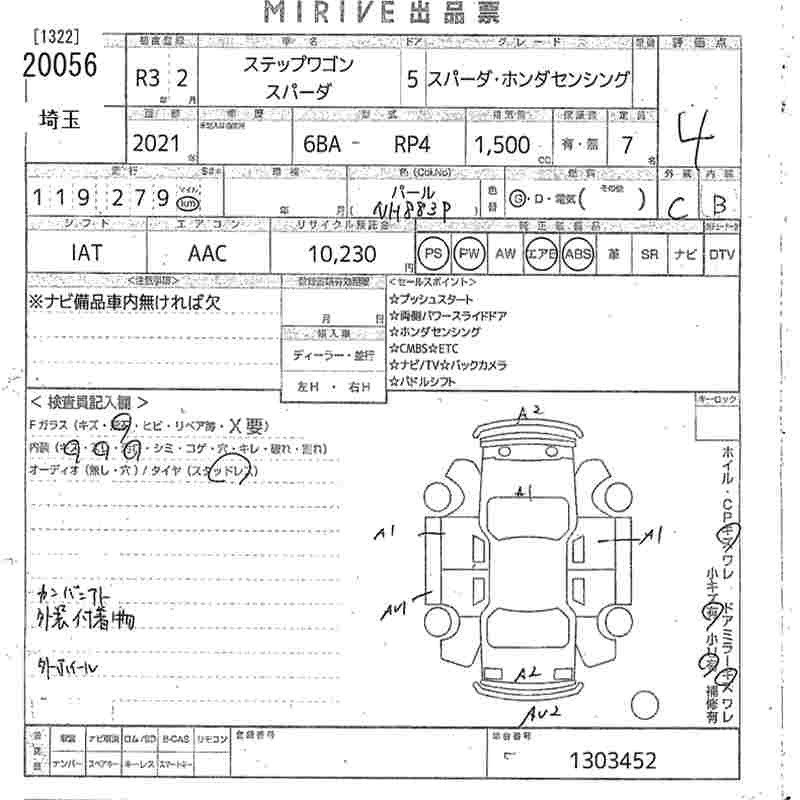 MIRIVE出品票
[1322]
20056
埼玉
車名
ドア
グレード
評価点
R3 2
年 月
ステップワゴン
スパーダ
5
スパーダ・ホンダセンシング
4
車歴
型式
排気量
定員
2021
年
6BA - RP4
1,500
CC
有・無
7
名
走行
車検
色(Col.No)
燃費
外装
内装
119279
マイル
km
年 月
パール
NH883P
色替
G・D・電気(その他)
C
B
シフト
エアコン
リサイクル預託金
純正装備品
IAT
AAC
10,230
円
PS
PW
AW
エアB
ABS
革
SR
ナビ
DTV
<注意事項>
※ナビ備品車内無ければ欠
月 日
輸入車
ディーラー・並行
左H ・ 右H
<セールスポイント>
☆プッシュスタート
☆両側パワースライドドア
☆ホンダセンシング
☆CMBS☆ETC
☆ナビ/TV☆バックカメラ
☆パドルシフト
<検査員記入欄>
キーロック
Fガラス(キズ・ ・ヒビ・リペア等・X要)
内装( ・シミ・コゲ・穴・キレ・破れ・割れ)
オーディオ(無し・穴)/タイヤ(スタッドレス)
外装付着物
A2
A1
A1
A1
AU1
A2
AU2
ホイル・CPキズワレ ドアミラーキズワレ
小キズ有 小凹有 補修有
ナンバー
スペアキー
キーレス
スマートキー
B-CAS
リモコン
登録番号
1303452